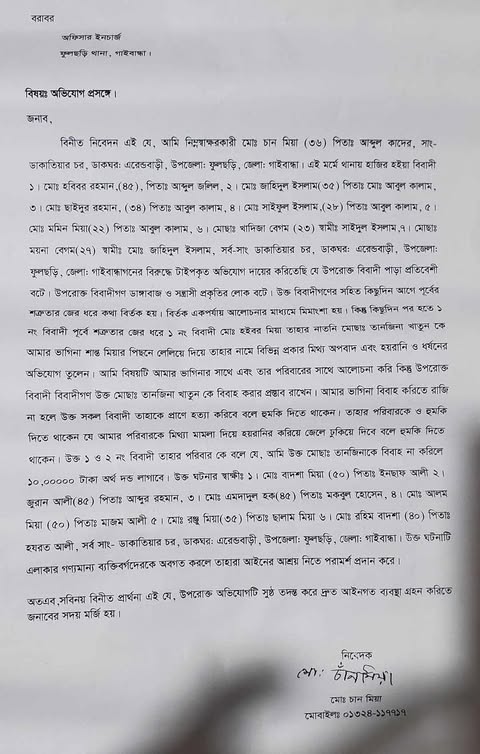 বরাবর
অফিসার ইনচার্জ
ফুলছড়ি থানা, গাইবান্ধা।
বিষয়ঃ অভিযোগ প্রসঙ্গে।
জনাব,
বিনীত নিবেদন এই যে, আমি নিম্নস্বাক্ষরকারী মোঃ চান মিয়া (৩৬) পিতাঃ আব্দুল কাদের, সাং-
ডাকাতিয়ার চর, ডাকঘর: এরেন্ডবাড়ী, উপজেলা: ফুলছড়ি, জেলা: গাইবান্ধা। এই মর্মে থানায় হাজির হইয়া বিবাদী
১। মোঃ হবিবর রহমান,(৪৫), পিতাঃ আব্দুল জলিল, ২। মোঃ জাহিদুল ইসলাম(৩৫) পিতাঃ মোঃ আবুল কালাম,
৩। মোঃ ছাইদুর রহমান, (৩৪) পিতাঃ আবুল কালাম, ৪। মোঃ সাইফুল ইসলাম,(২৮) পিতাঃ আবুল কালাম, ৫।
মোঃ মমিন মিয়া(২২) পিতাঃ আবুল কালাম, ৬। মোছাঃ খাদিজা বেগম (২৩) স্বামীঃ সাইদুল ইসলাম,৭। মোছাঃ
ময়না বেগম(২৭) স্বামীঃ মোঃ জাহিদুল ইসলাম, সর্ব-সাং ডাকাতিয়ার চর, ডাকঘর: এরেন্ডবাড়ী, উপজেলা:
ফুলছড়ি, জেলা: গাইবান্ধাগনের বিরুদ্ধে টাইপকৃত অভিযোগ দায়ের করিতেছি যে উপরোক্ত বিবাদী পাড়া প্রতিবেশী
বটে। উপরোক্ত বিবাদীগণ ডাঙ্গাবাজ ও সন্ত্রাসী প্রকৃতির লোক বটে। উক্ত বিবাদীগণের সহিত কিছুদিন আগে পূর্বের
শত্রুতার জের ধরে কথা বির্তক হয়। বির্তক একপর্যায় আলোচনার মাধ্যমে মিমাংশা হয়। কিন্তু কিছুদিন পর হতে ১
নং বিবাদী পূর্বে শত্রুতার জের ধরে ১ নং বিবাদী মোঃ হইবর মিয়া তাহার নাতনি মোছাঃ তানজিনা খাতুন কে
আমার ভাগিনা শান্ত মিয়ার পিছনে লেলিয়ে দিয়ে তাহার নামে বিভিন্ন প্রকার মিথ্য অপবাদ এবং হয়রানি ও ধর্ষনের
অভিযোগ তুলেন। আমি বিষয়টি আমার ভাগিনার সাথে এবং তার পরিবারের সাথে আলোচনা করি কিন্তু উপরোক্ত
বিবাদী বিবাদীগণ উক্ত মোছাঃ তানজিনা খাতুন কে বিবাহ করার প্রস্তাব রাখেন। আমার ভাগিনা বিবাহ করিতে রাজি
না হলে উক্ত সকল বিবাদী তাহাকে প্রাণে হত্যা করিবে বলে হুমকি দিতে থাকেন। তাহার পরিবারকে ও হুমকি
দিতে থাকেন যে আমার পরিবারকে মিথ্যা মামলা দিয়ে হয়রানির করিয়ে জেলে ঢুকিয়ে দিবে বলে হুমকি দিতে
থাকেন। উক্ত ১ ও ২ নং বিবাদী তাহার পরিবার কে বলে যে, আমি উক্ত মোছাঃ তানজিনাকে বিবাহ না করিলে
১০,০০০০০ টাকা অর্থ দন্ড লাগাবে। উক্ত ঘটনার স্বাক্ষীঃ ১। মোঃ বাদশা মিয়া (৫০) পিতাঃ ইনছাফ আলী ২।
জুরান আলী(৪৫) পিতাঃ আব্দুর রহমান, ৩। মোঃ এমদাদুল হক(৪৫) পিতাঃ মকবুল হোসেন, ৪। মোঃ আলম
মিয়া (৫০) পিতাঃ মাজম আলী ৫। মোঃ রঞ্জু মিয়া(৩৫) পিতাঃ ছালাম মিয়া ৬। মোঃ রহিম বাদশা (৪০) পিতাঃ
হযরত আলী, সর্ব সাং- ডাকাতিয়ার চর, ডাকঘর: এরেন্ডবাড়ী, উপজেলা: ফুলছড়ি, জেলা: গাইবান্ধা। উক্ত ঘটনাটি
এলাকার গণ্যমান্য ব্যক্তিবর্গদেরকে অবগত করলে তাহারা আইনের আশ্রয় নিতে পরামর্শ প্রদান করে।
অতএব,সবিনয় বিনীত প্রার্থনা এই যে, উপরোক্ত অভিযোগটি সুষ্ঠ তদন্ত করে দ্রুত আইনগত ব্যবস্থা গ্রহন করিতে
জনাবের সদয় মর্জি হয়।
নিবেদক
মোঃ চাঁনমিয়া
মোঃ চান মিয়া
মোবাইলঃ ০১৩২৪-১১৭৭১৭